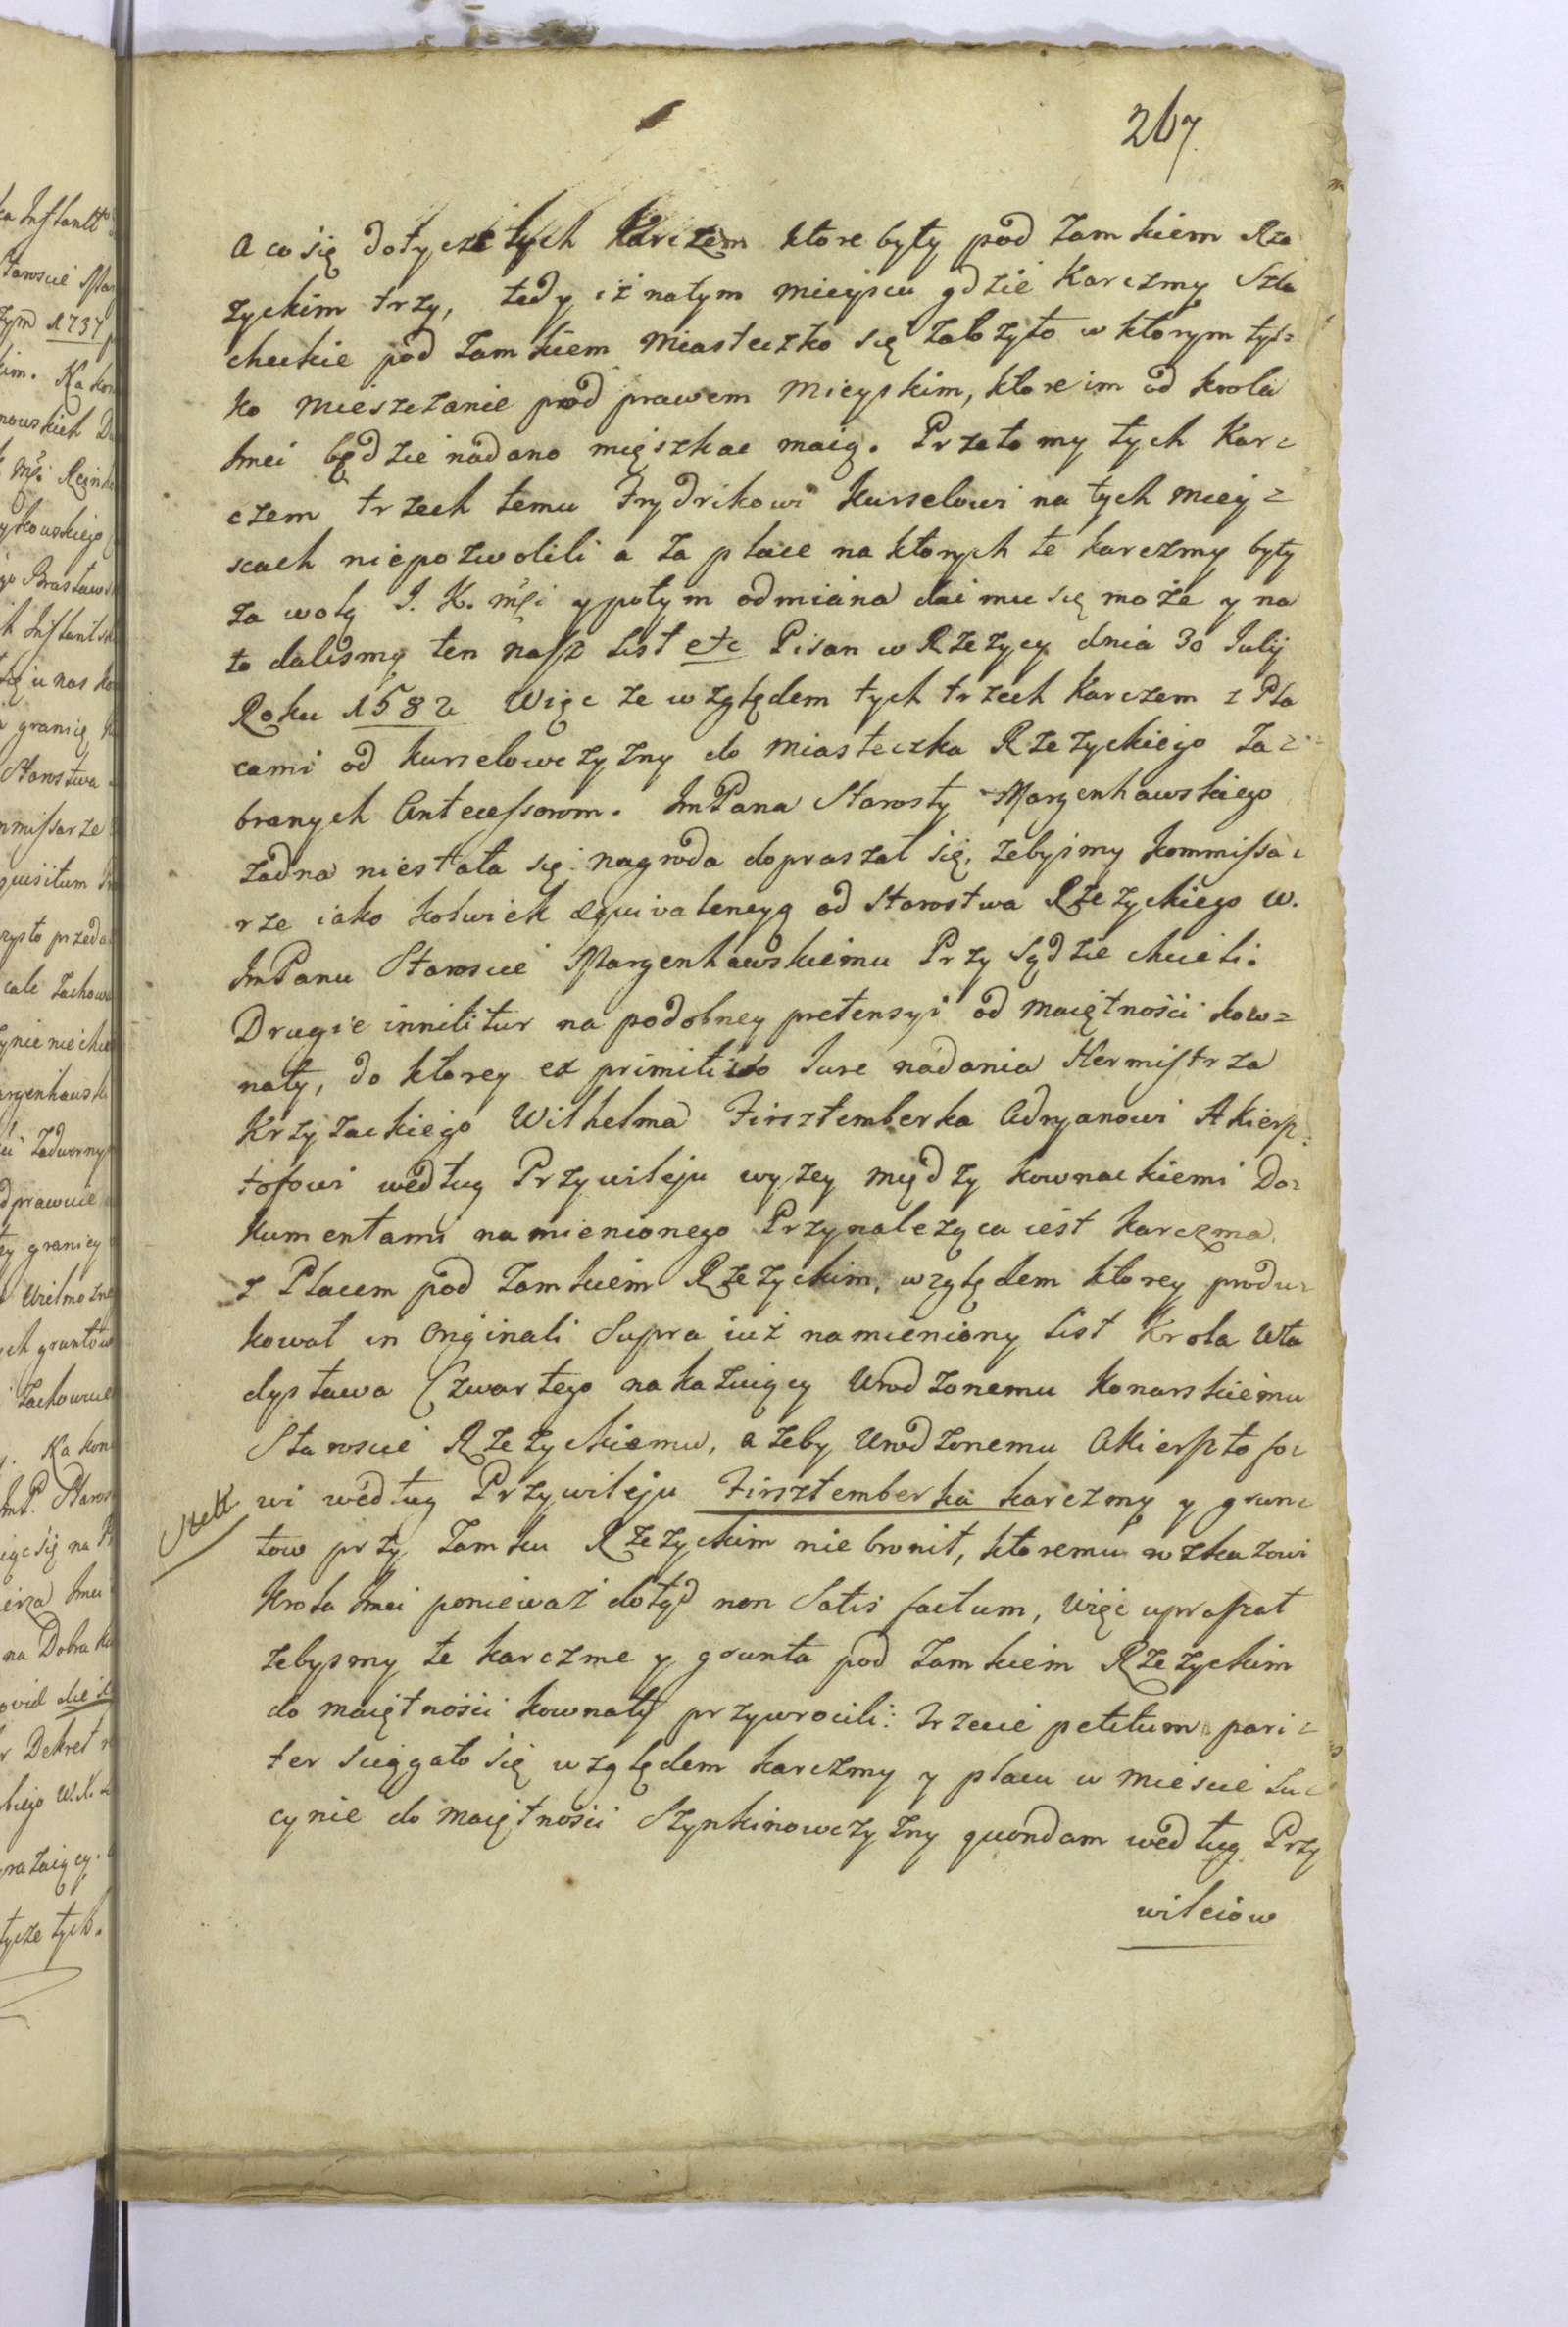 267.
A co się dotycze tych Karczem ktore były pod Zamkiem Rze
zyckim trzy, tedy iż natym mieyscu gdzie Karczmy Szla
checkie pod Zamkiem Miasteczko się założyło w ktorym tyl=
ko Mieszczanie pod prawem Mieyskim, ktore im od krola
Jmci będzie nadano mięszkac maią. Przeto my tych Kar=
czem trzech temu Frydrikowi Kurselowi na tych miey=
scach niepozwolili a za place na ktorych te karczmy były
za wolą J. K. mśi y potym odmiana dai mu się może y na
to dalismy ten nasz List etc Pisan w Rzezycy dnia 30 Julij
Roku 1582 Więc ze względem tych trzech Karczem z Pla
cami od kurselowczyzny do Miasteczka Rzezyckiego za=
branych Antecessorom. ImPana Starosty Margenhawskiego
żadna niestała się nagroda dopraszał się, żebysmy kommissa=
rze iako kolwiek æquivalencyą od Starostwa Rzezyckiego W.
ImPanu Staroscie Margenhawskiemu Przysądzie chcieli.
Drugie innititur na podobney pretensyi od maiętności kow=
naty, do ktorey ex primitivo Jure nadania Hermistrza
Krzyzackiego Wilhelma Firsztemberka Adryanowi Akiersz=
tofowi według Przywileju wyzey między kownackiemi Do=
kumentami namienionego Przynalezyca iest karczma
z Placem pod Zamkiem Rzezyckim, względem ktorey produ=
kował in Originali Supra iuż namieniony List Krola Wła
dysława Czwartego nakazuiący Urodzonemu Konarskiemu
Staroscie Rzezyckiemu, azeby Urodzonemu Akiersztofo=
wi według Przywileju Firsztemberka karczmy y grun=
tow przy Zamku Rzezyckim niebronił, ktoremu rozkazowi
Krola Jmci ponieważ dotąd non Satis factum, Więc upraszał
zebysmy te karczme y grunta pod Zamkiem Rzezyckim
do maiętności kownaty przywrocili: Trzecie petitum pari=
ter sciągało się względem karczmy y placu w miescie Lu=
cynie do maiętności Szynkinowczyzny quondam według Przy
wileiow